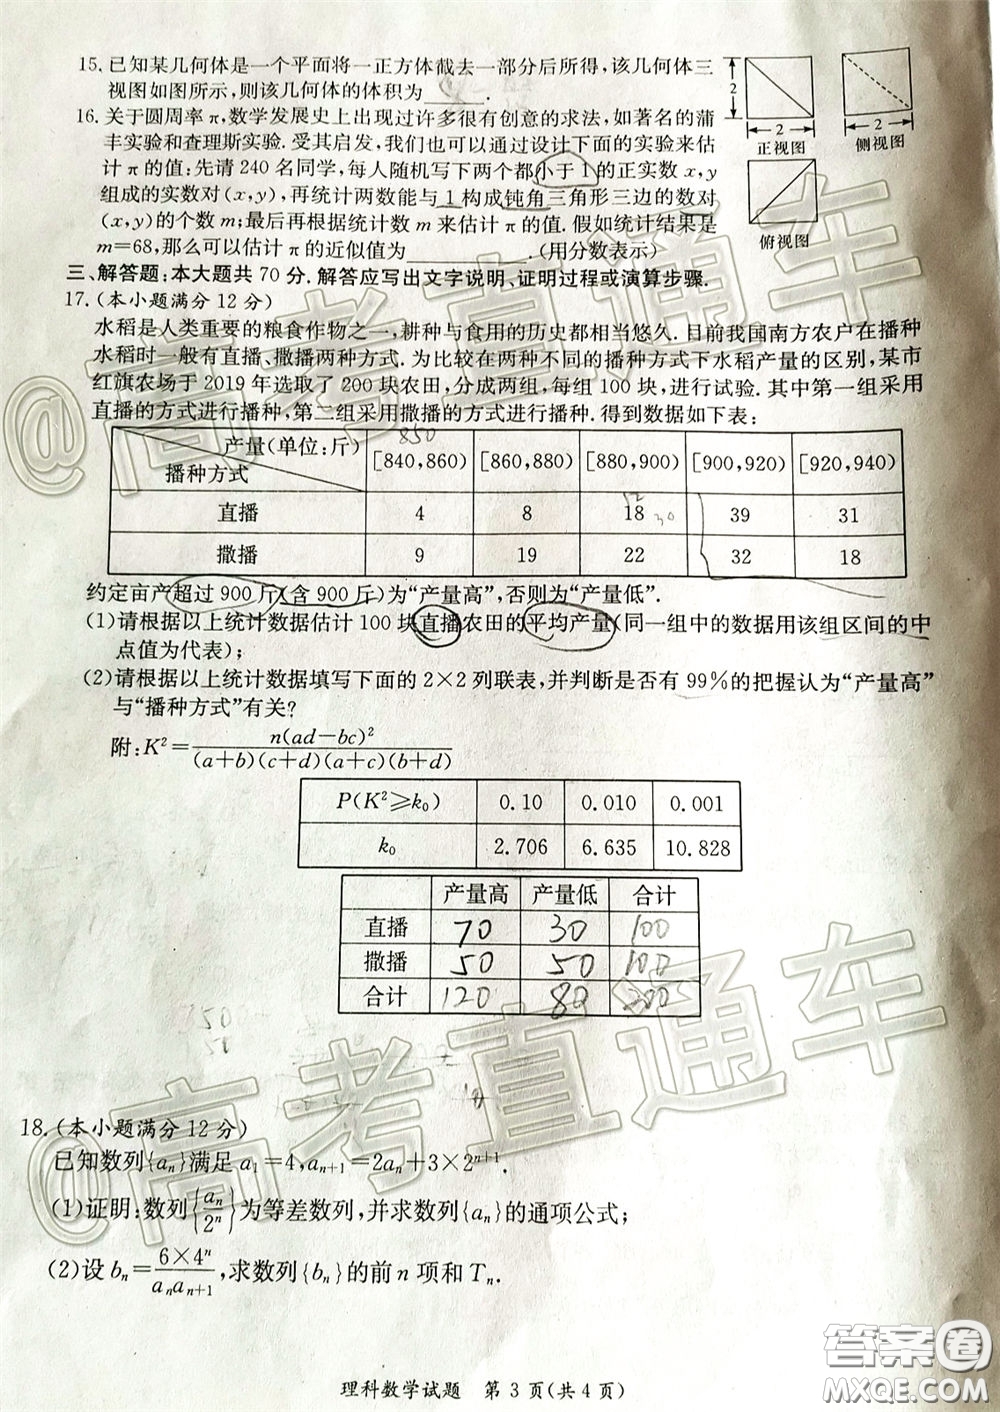 15.已知某几何体是一个平面将一正方体截去一部分后所得,该几何体三
视图如图所示,则该几何体的体积为______.
2
2
正视图
2
侧视图
俯视图
16.关于圆周率π,数学发展史上出现过许多很有创意的求法,如著名的蒲
丰实验和查理斯实验.受其启发,我们也可以通过设计下面的实验来估
计π的值:先请240名同学,每人随机写下两个都小于1的正实数x,y
组成的实数对(x,y),再统计两数能与1构成钝角三角形三边的数对
(x,y)的个数m;最后再根据统计数m来估计π的值.假如统计结果是
m=68,那么可以估计π的近似值为________.(用分数表示)
三、解答题:本大题共70分.解答应写出文字说明、证明过程或演算步骤.
17.(本小题满分12分)
水稻是人类重要的粮食作物之一,耕种与食用的历史都相当悠久.目前我国南方农户在播种
水稻时一般有直播、撒播两种方式.为比较在两种不同的播种方式下水稻产量的区别,某市
红旗农场于2019年选取了200块农田,分成两组,每组100块,进行试验.其中第一组采用
直播的方式进行播种,第二组采用撒播的方式进行播种.得到数据如下表:
850
产量(单位:斤) 播种方式 [840,860) [860,880) [880,900) [900,920) [920,940)
直播 4 8 18 39 31
撒播 9 19 22 32 18
约定亩产超过900斤(含900斤)为“产量高”,否则为“产量低”.
(1)请根据以上统计数据估计100块直播农田的平均产量(同一组中的数据用该组区间的中
点值为代表);
(2)请根据以上统计数据填写下面的2×2列联表,并判断是否有99%的把握认为“产量高”
与“播种方式”有关?
附:K²=n(ad-bc)²/(a+b)(c+d)(a+c)(b+d)
P(K²≥k₀) 0.10 0.010 0.001
k₀ 2.706 6.635 10.828
产量高 产量低 合计
直播 70 30 100
撒播 50 50 100
合计 120 80 200
18.(本小题满分12分)
已知数列{aₙ}满足a₁=4,aₙ₊₁=2aₙ+3×2ⁿ⁺¹.
(1)证明:数列{aₙ/2ⁿ}为等差数列,并求数列{aₙ}的通项公式;
(2)设bₙ=6×4ⁿ/aₙaₙ₊₁,求数列{bₙ}的前n项和Tₙ.
理科数学试题 第3页(共4页)
@高考直通车
@高考直通车
答案卷
MXQE.COM